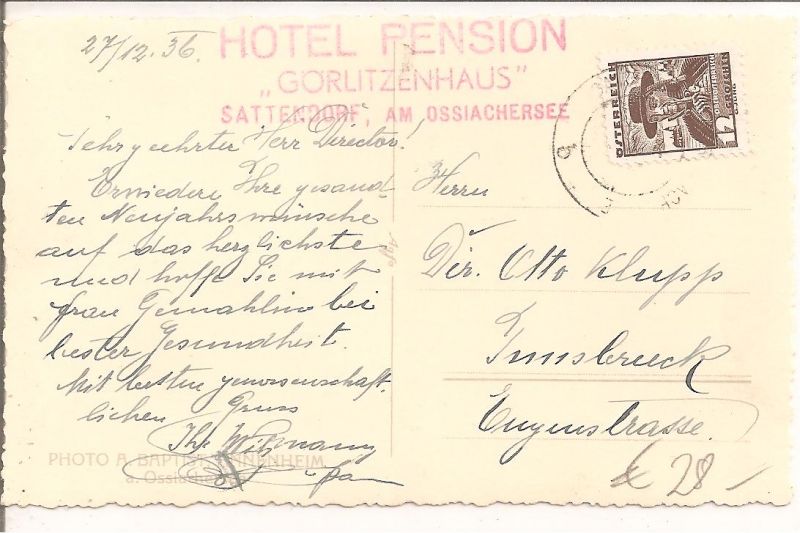 27/12.36.
HOTEL PENSION
„GÖRLITZENHAUS"
SATTENDORF, AM OSSIACHERSEE
Sehr geehrter Herr Director!
Erwiedere Ihre gesand-
ten Neujahrswünsche
auf das herzlichste
und hoffe Sie mit
frau Gemahlin bei
bester Gesundheit.
Mit besten genossenschaft-
lichen Gruss
Ihr
PHOTO A. BAPTIST, ANNENHEIM
a. Ossiachersee
ÖSTERREICH
Herrn
Dir. Otto Klupp
Innsbruck
Eugenstrasse.
28 -